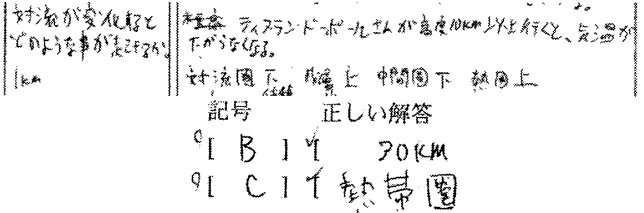 対流が変化すると
どのような事が起こるか。
1km
ティスランドボールさんが高度10km以上行くと、気温が
たがらなくなる。
対流圏 下 成層 上 中間圏 下 熱圏 上
記号 正しい解答
[ B ] [ 30KM
[ C ] [ 熱帯圏